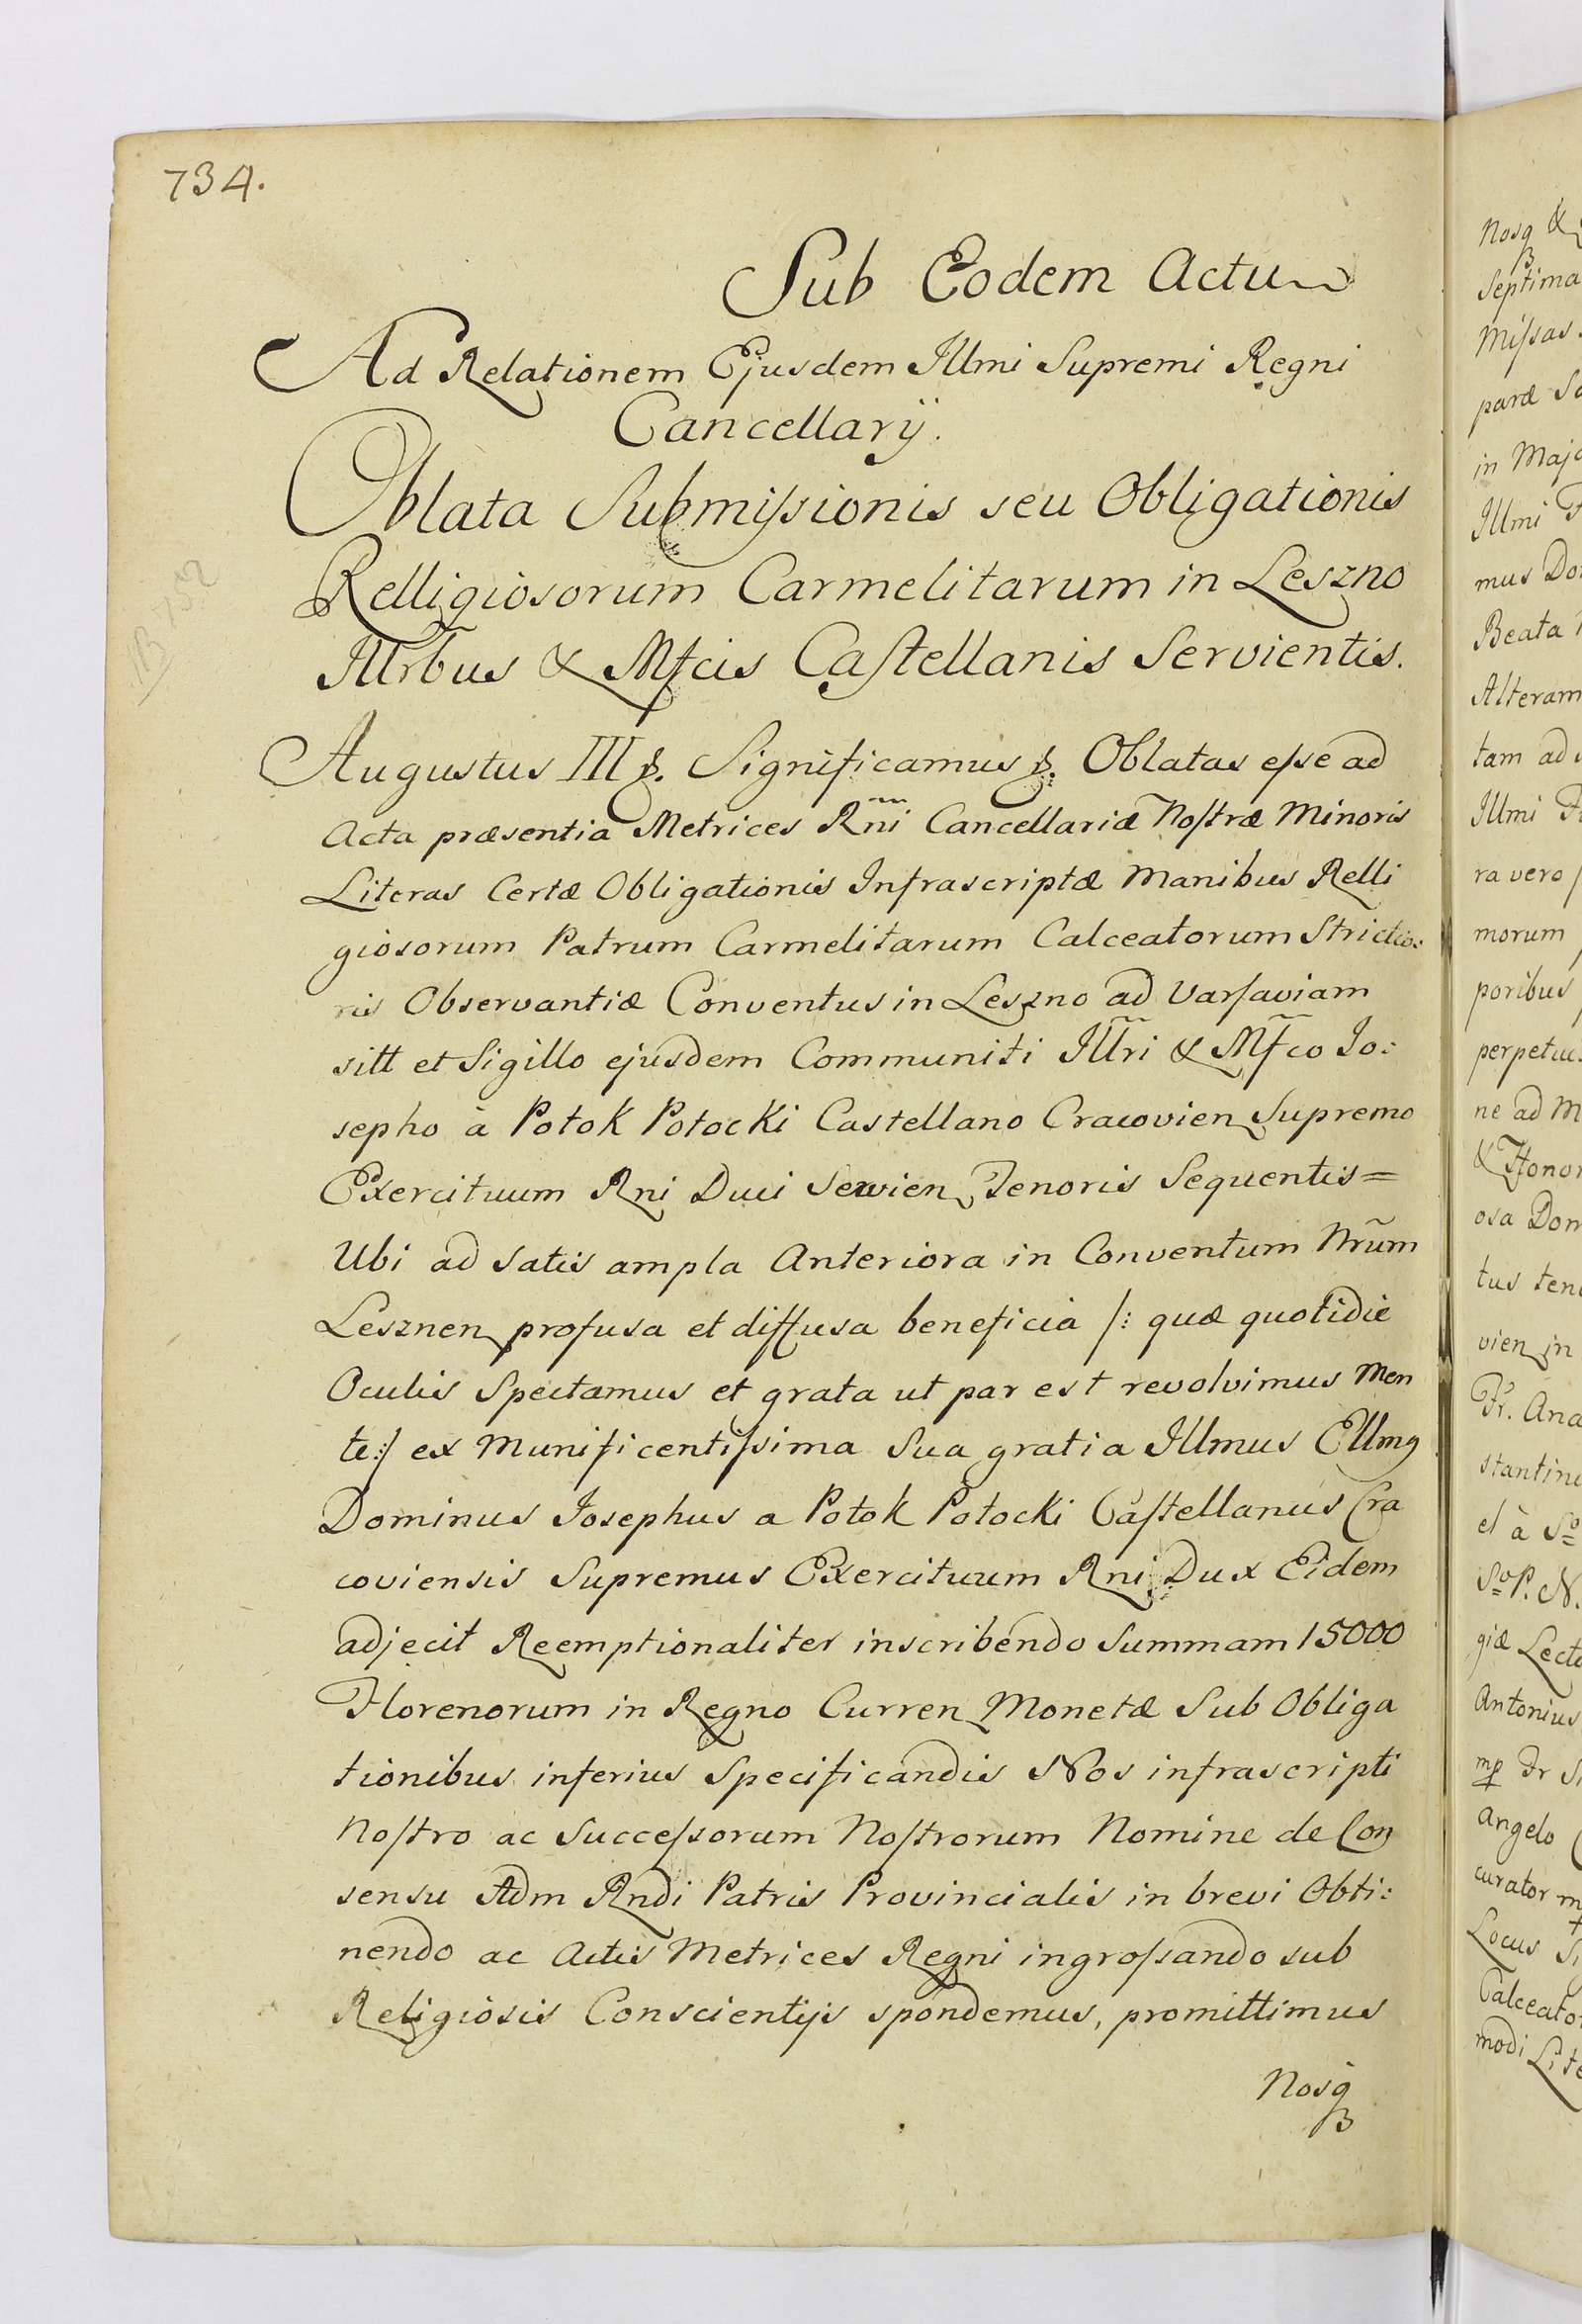 734.
Sub Eodem Actu
Ad Relationem Ejusdem Illmi Supremi Regni
Cancellarÿ.
Oblata Submiſsionis seu Obligationis
Relligiosorum Carmelitarum in Leszno
Illrbus & Mfcis Caſtellanis Servientis.
Augustus III &. Significamus &. Oblatas eſse ad
Acta præsentia Metrices Rñi Cancellariæ Noſtræ Minoris
Literas Certæ Obligationis Infrascriptæ Manibus Relli
giosorum Patrum Carmelitarum Calceatorum Strictio:
ris Observantiæ Conventus in Leszno ad Varſaviam
sitt et Sigillo ejusdem Communiti Illr̃i & Mf̃co Jo:
sepho à Potok Potocki Castellano Cracovien Supremo
Exercituum Rni Duci Servien Tenoris Sequentis=
Ubi ad satis ampla Anteriora in Conventum Nrũm
Lesznen profusa et diffusa beneficia /: quæ quotidie
Oculis Spectamus et grata ut par est revolvimus Men
te:/ ex Munificentiſsima Sua gratia Illmus Ellmꝯ
Dominus Josephus a Potok Potocki Caſtellanus Cra
coviensis Supremus Exercituum Rni Dux Eidem
adjecit Reemptionaliter inscribendo Summam 15000
Florenorum in Regno Curren Monetæ Sub Obliga
tionibus inferius Specificandis Nos infrascripti
Noſtro ac Succeſsorum Noſtrorum Nomine de Con
sensu Adm Rndi Patris Provincialis in brevi Obti:
nendo ac Actis Metrices Regni ingroſsando sub
Religiosis Conscientijs spondemus, promittimus
Nosq
Nosq &
Septima
Miſsas
paræ
in Majo
Illmi
mus Do
Beata
Alteram
tam ad
Illmi
ra vero
morum
poribus
perpetu
ne ad M
& Honor
osa Dom
tus ten
vien in
Fr. Ana
stantin
et à Sº
Sº P. N.
giæ Lect
Antonius
mp Fr
Angelo
curator
Locus
Calceato
modi Lite